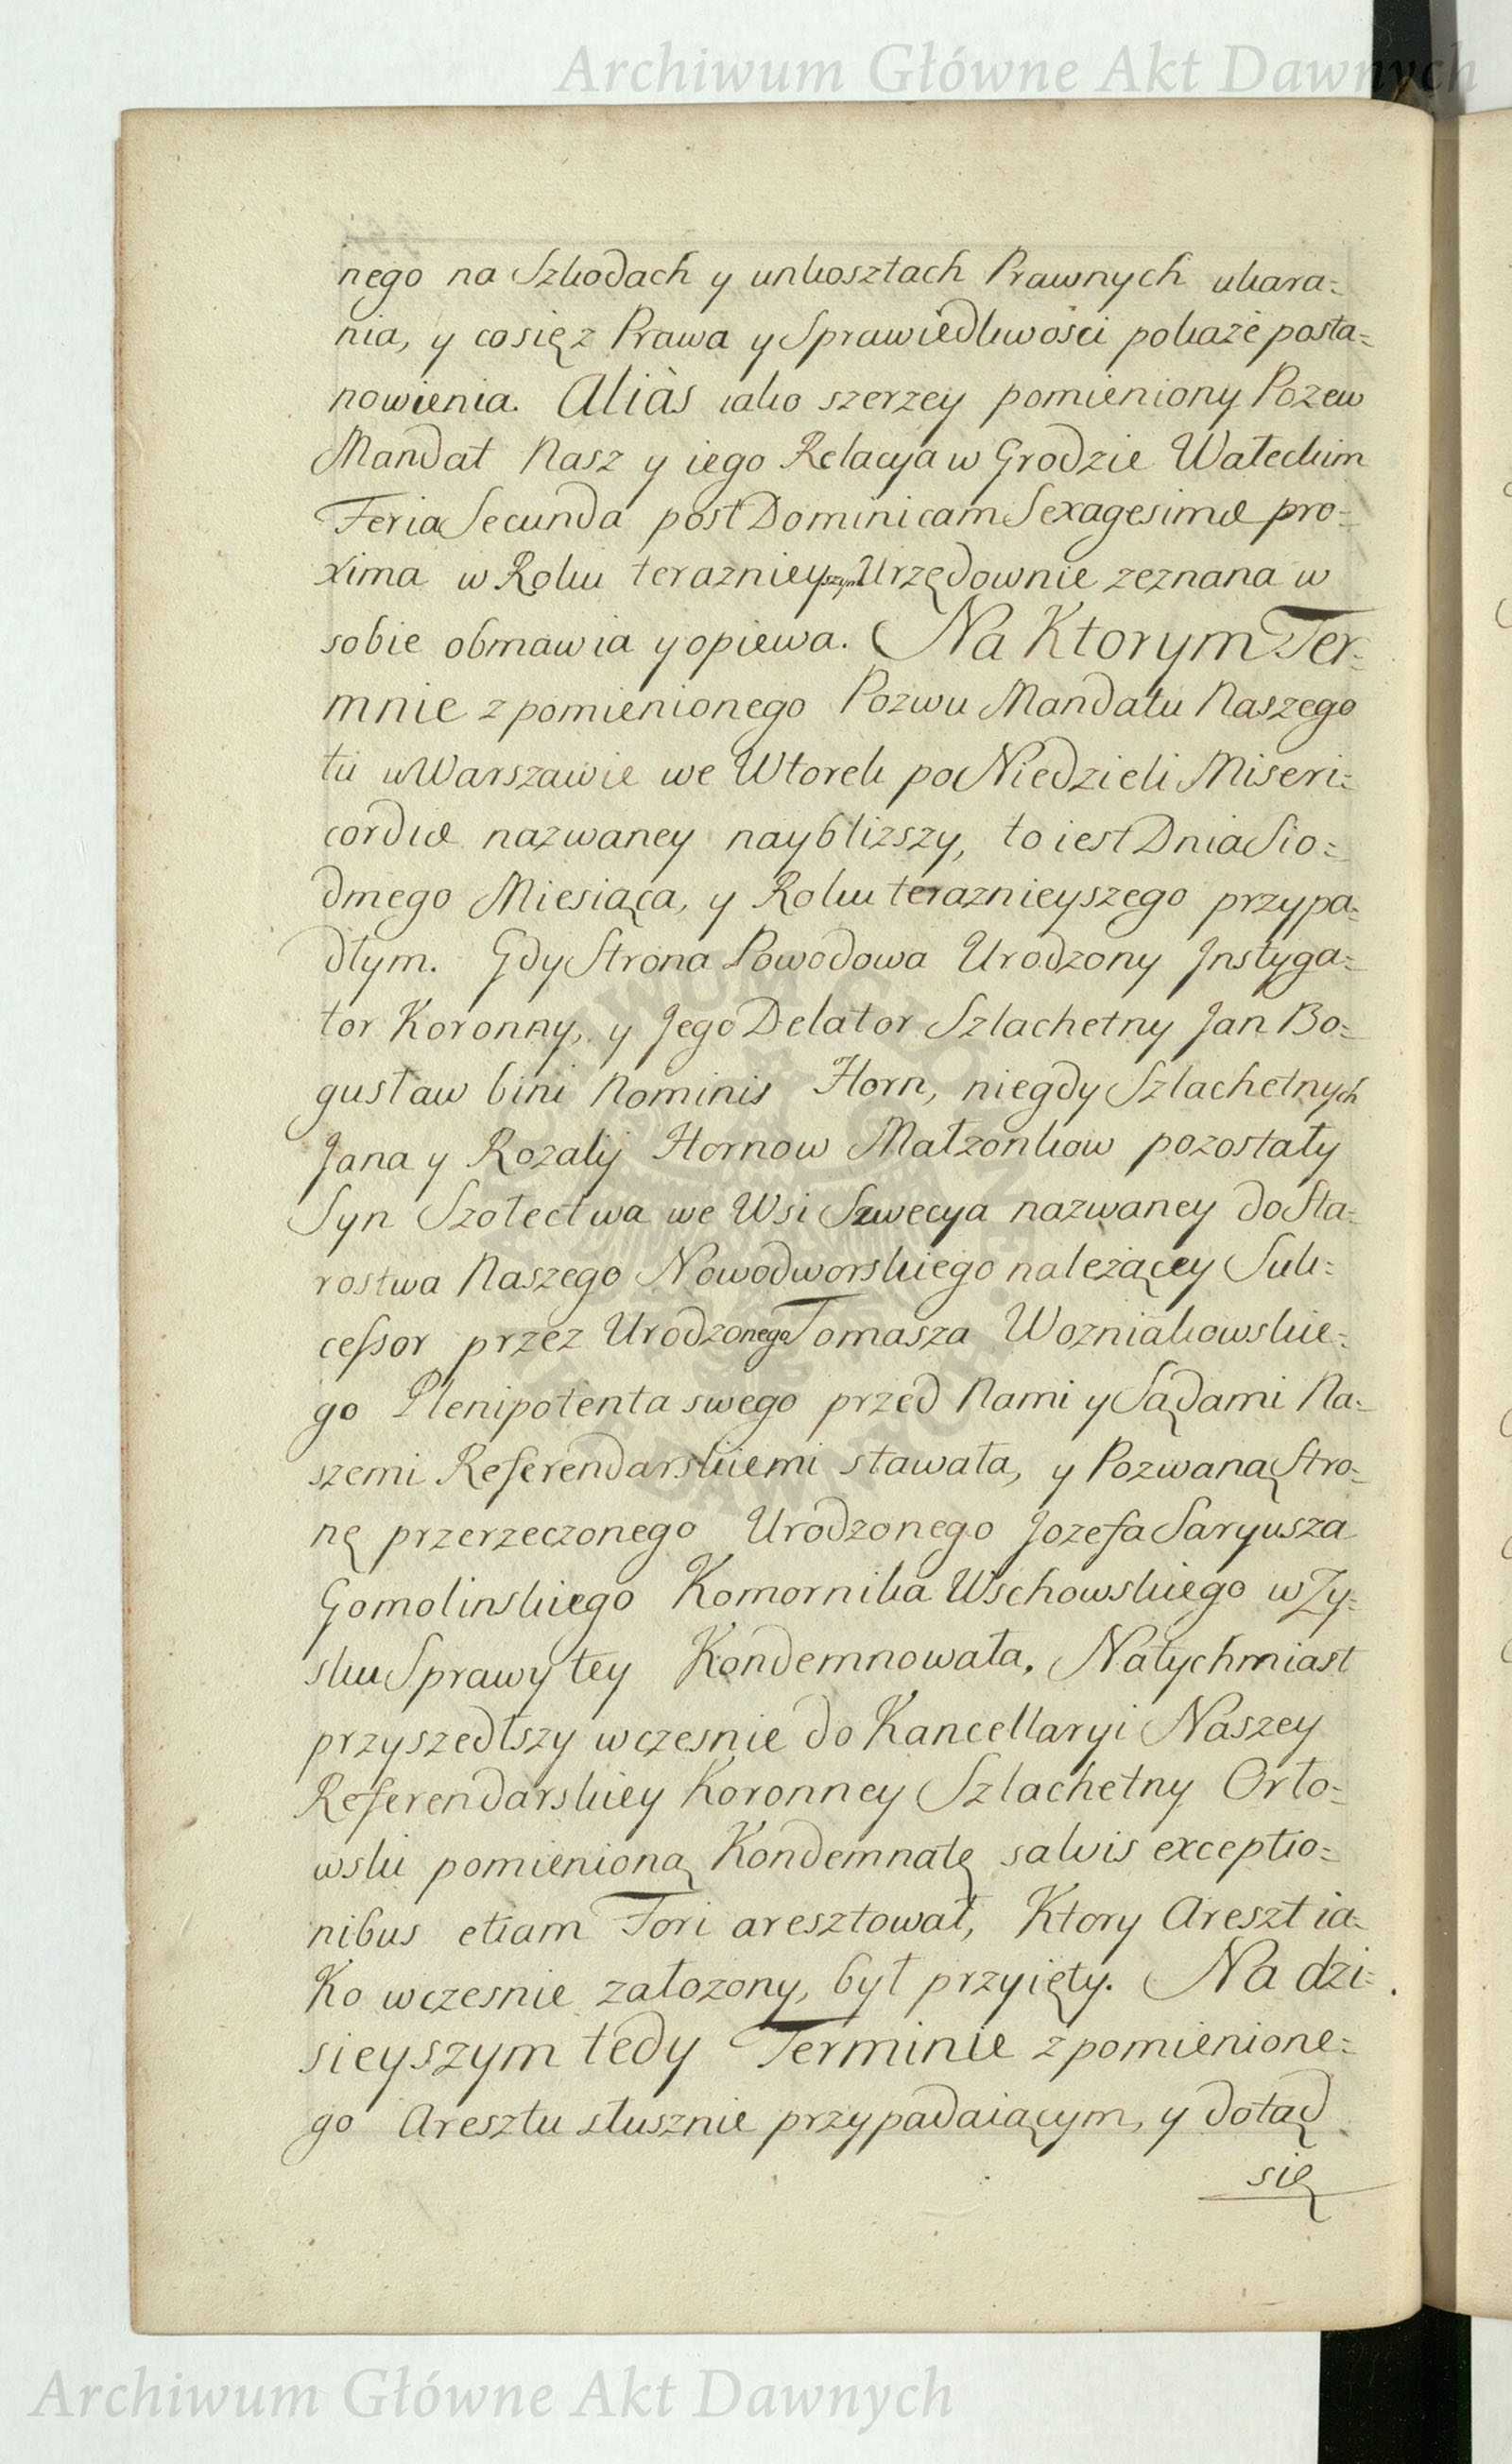 Archiwum Główne Akt Dawnych
nego na Szkodach y unkosztach Prawnych ukara=
nia, y co się z Prawa y Sprawiedliwości pokaże posta=
nowienia. Aliàs iako szerzey pomieniony Pozew
Mandat Nasz y iego Relacya w Grodzie Wałeckim
Feria Secunda post Dominicam Sexagesimæ pro=
xima w Roku teraznieyszym Urzędownie zeznana w
sobie obmawia y opiewa. Na Ktorym Ter=
mnie z pomienionego Pozwu Mandatu Naszego
tu w Warszawie we Wtorek po Niedzieli Miseri=
cordiæ nazwaney naybliższy, to iest Dnia Sio=
dmego Miesiąca, y Roku teraznieyszego przypa=
dłym. Gdy Strona Powodowa Urodzony Instyga=
tor Koronny, y Jego Delator Szlachetny Jan Bo=
gusław bini Nominis Horn, niegdy Szlachetnych
Jana y Rozalij Hornow Małzonkow pozostały
Syn Szołectwa we Wsi Szwecya nazwaney do Sta=
rostwa Naszego Nowodworskiego należącey Suk=
cessor przez Urodzonego Tomasza Wozniakowskie=
go Plenipotenta swego przed Nami y Sądami Na=
szemi Referendarskiemi stawała, y Pozwaną Stro=
nę przerzeczonego Urodzonego Jozefa Saryusza
Gomolinskiego Komornika Wschowskiego w Zy=
sku Sprawy tey Kondemnowała, Natychmiast
przyszedłszy wczesnie do Kancellaryi Naszey
Referendarskiey Koronney Szlachetny Orło=
wski pomienioną Kondemnatę salvis exceptio=
nibus etiam Fori aresztował, Ktory Areszt ia=
Ko wczesnie załozony, był przyięty. Na dzi=
sieyszym tedy Terminie z pomienione=
go Aresztu słusznie przypadaiącym, y dotąd
się
Archiwum Główne Akt Dawnych